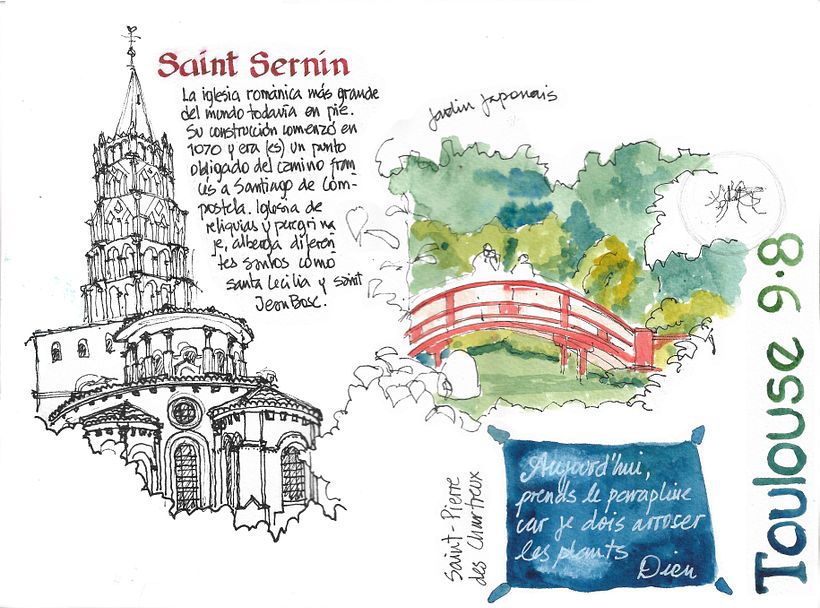 Saint Sernin
La iglesia románica más grande
del mundo todavía en pie.
Su construcción comenzó en
1070 y era (es) un punto
obligado del camino fran
cés a Santiago de Com-
postela. Iglesia de
reliquias y peregrina
je, alberga diferen
tes santos como
santa Cecilia y saint
Jean Bosc.
Jardin Japonais
Toulouse 9·8
Saint-Pierre
des Chartreux
Aujourd'hui,
prends le parapluie
car je dois arroser
les plants
Dieu